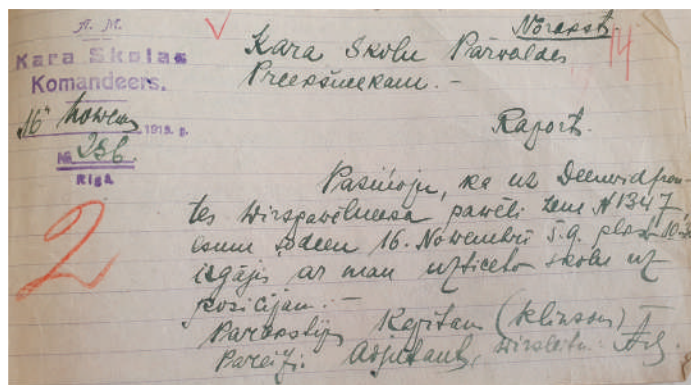 A. M.
Kara Skolas
Komandeers.
16 Nowem 1919. g.
№ 256.
Rīgā.
2
Noraksts
14
Kara Skolu Pārwaldes
Preekšneekam. -
Raports.
Pasiņoju, ka uz Deenwidfron-
tes Wirspawēlneeka pawēli zem № 1347,
esmu šodeen 16. Nowembrī š.g. plkst. 10
izgājis ar man uzticeto skolu uz
pozicijam. -
Parakstijis Kapitans (Klinsons)
Pareizi: Adjutants, wirsleitn.